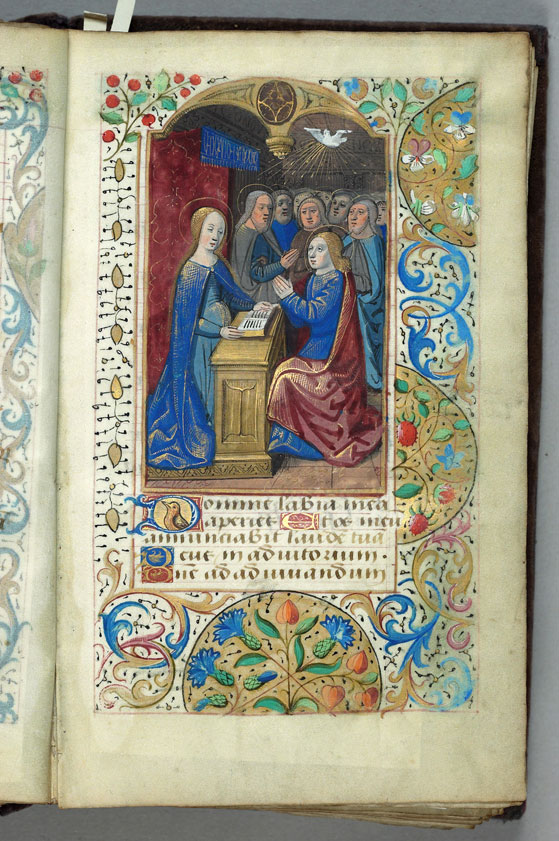 Domine labia mea
aperies Et os meu
annunciabit laude tua
Deus in adiutorium
Dne ad adiuuandum